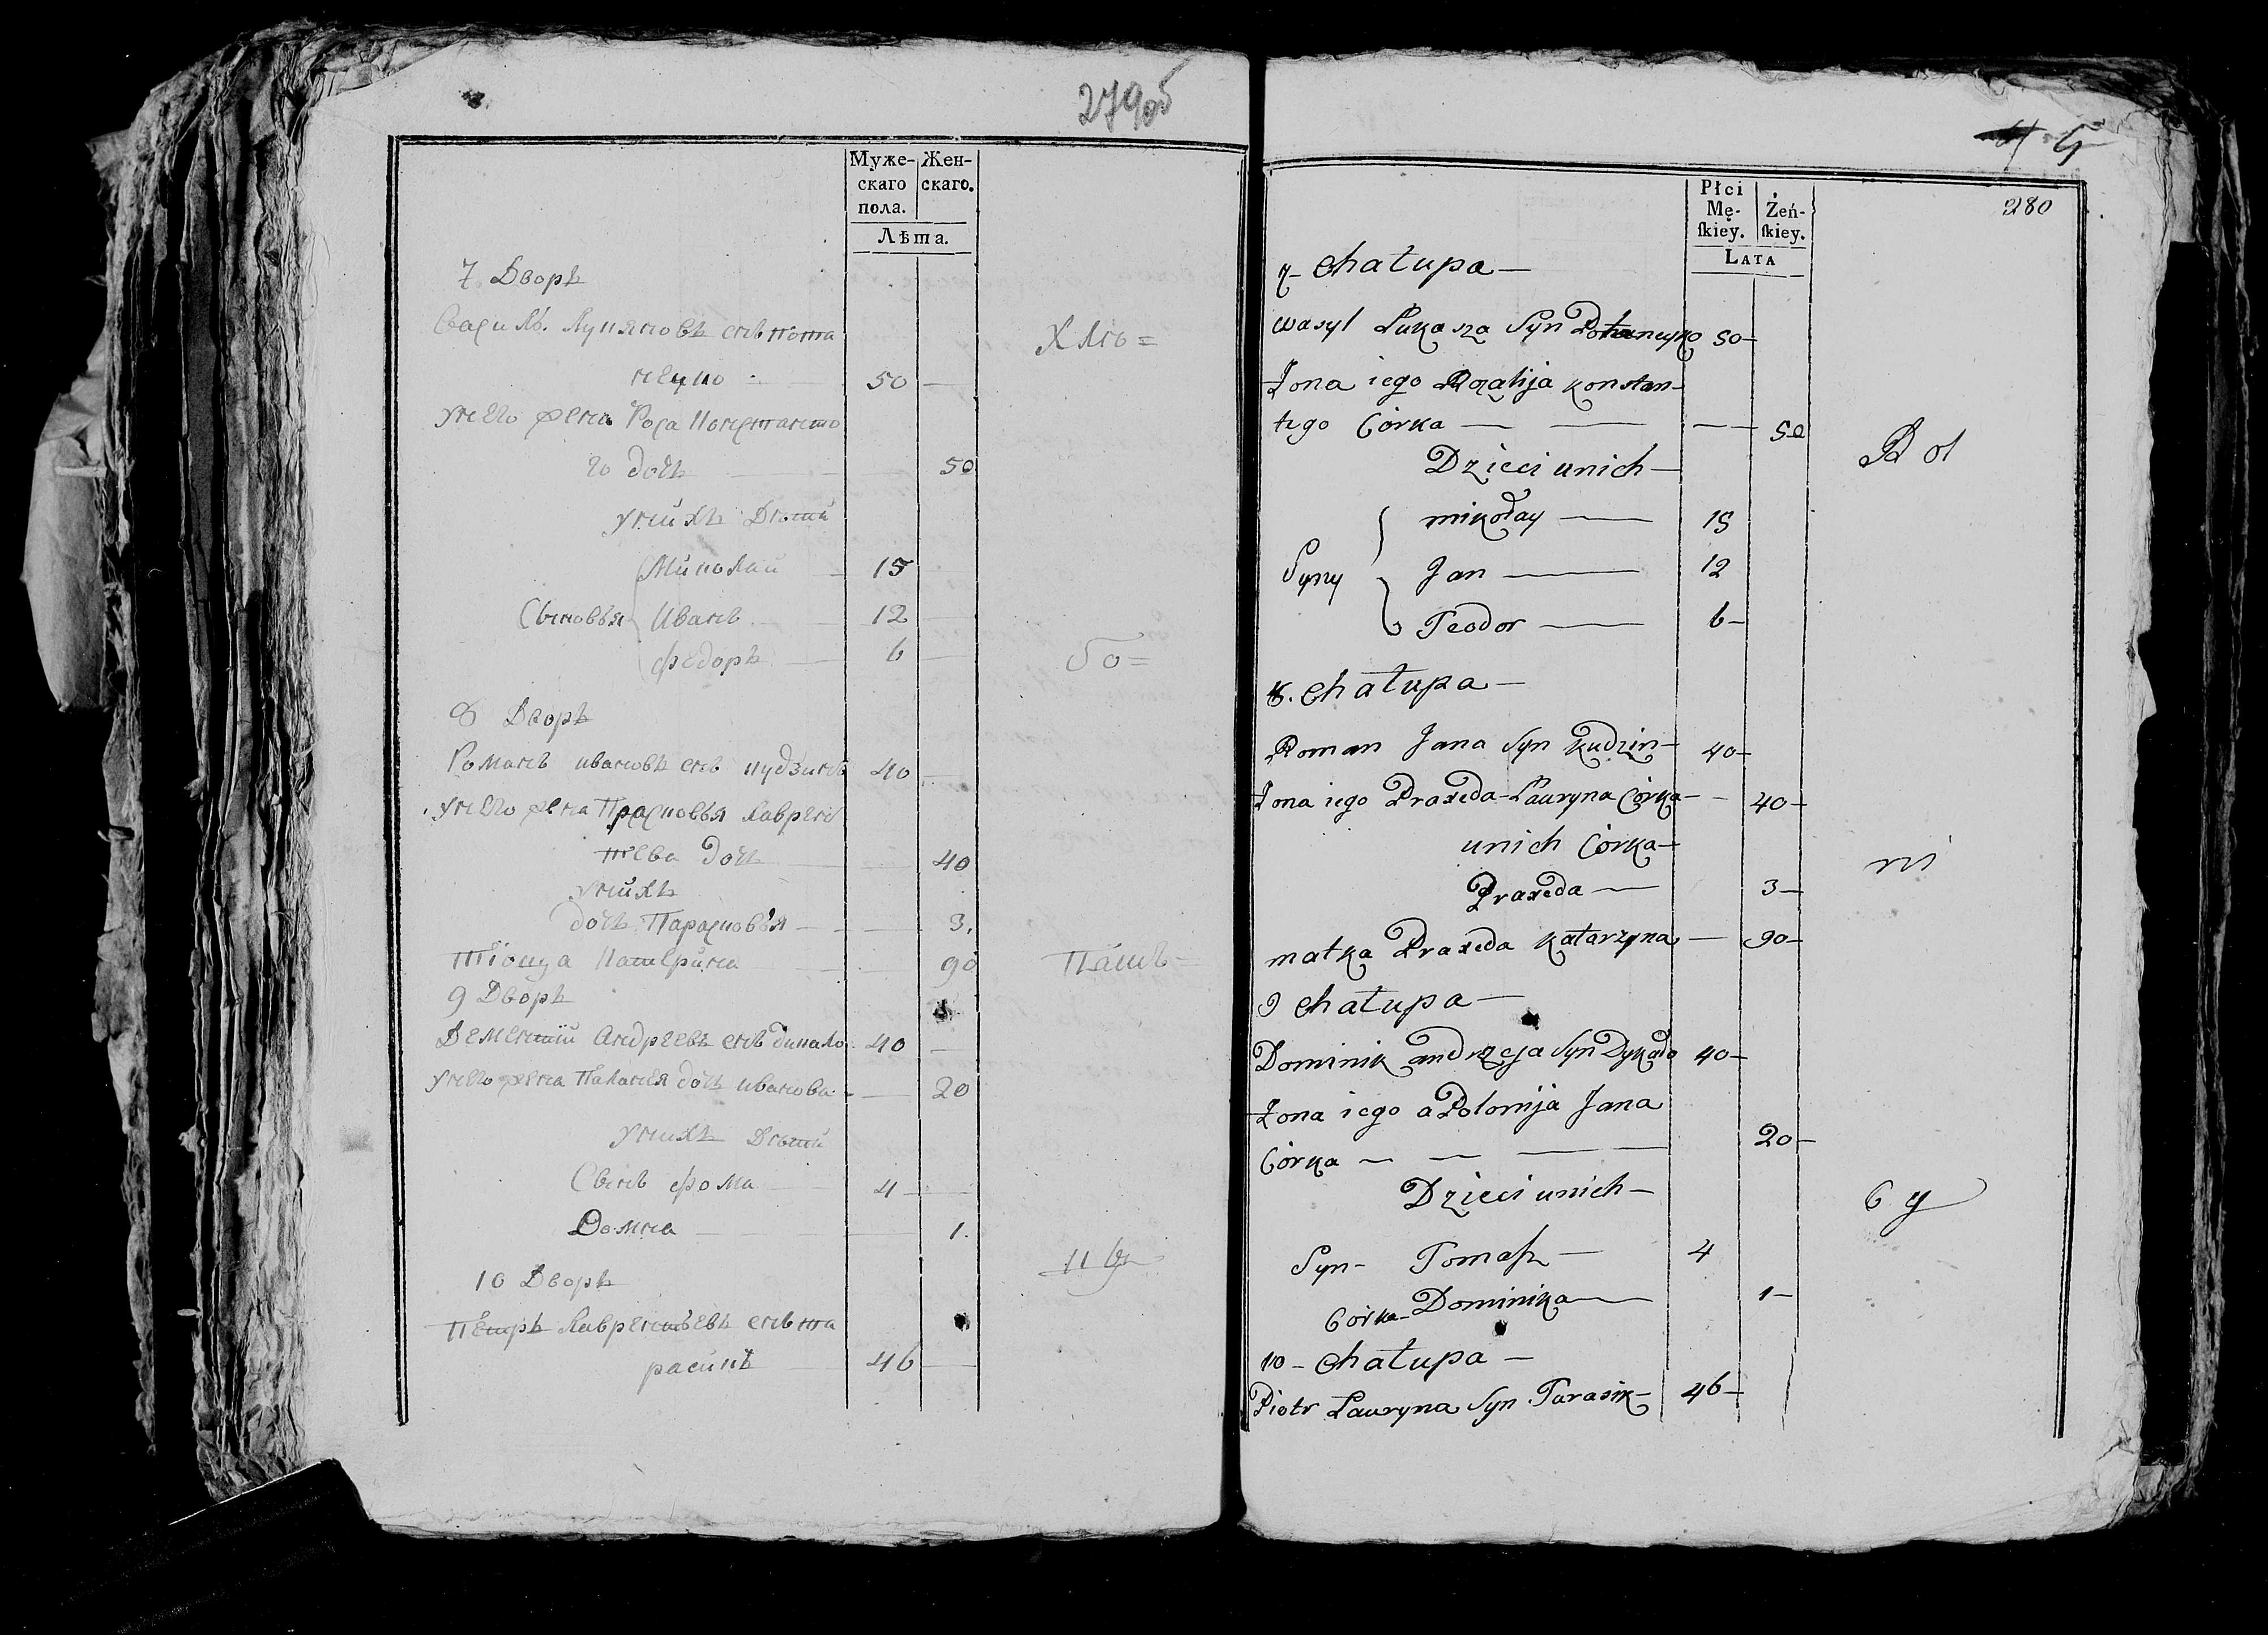 279об
Муже-
скаго
пола.
Жен-
скаго.
Лѣта.
7 Дворъ
Васи лъ. Лукяновъ снъ пота
нецко 50 —
унего жена Роса Константо
го дочъ 50
унихъ Дѣти
Миколай 15
Сыновья Иванъ 12
Федоръ 6
Хлѣ=
бо=
8 Дворъ
Романъ ивановъ снъ кудзинъ 40 —
унего жена Прасковья Лаврен
тева дочъ 40
унихъ
дочъ Парасковья — 3.
Тіоща Катерина 90
Пашъ-
9 Дворъ
Дементій Андреевъ снъ дикало 40 —
унего жена Паланея дочъ иванова - 20
унихъ Дѣти
Сынъ Фома 4
Домна 1.
10 Дворъ
Петръ Лаврентьевъ снъ та
расикъ 46 —
5
280
Płci
Mę-
ſkiey.
Żeń-
ſkiey.
LATA
7- Chałupa —
wasyl Łukasza Syn 50 —
Żona iego Rozalija konstan-
tego Córka — — — 50
Dzieci unich —
mikołay — 15
Syny Jan — 12
Teodor — 6 —
Rol
8. Chałupa —
Roman Jana Syn Kudzin — 40 —
Żona iego Praxeda Ławryna Córka — 40 —
unich Córka —
Praxeda — 3 —
matka Praxeda Katarzyna — 90 —
ni
9 Chałupa —
Dominik andrzeja Syn Dykało 40 —
Żona iego aPolonija Jana
Córka — — — 20 —
Dzieci unich —
Syn - Tomaſz — 4
Córka - Dominika — 1 —
cy
10 - Chałupa —
Piotr Ławryna Syn Tarasik — 46 —